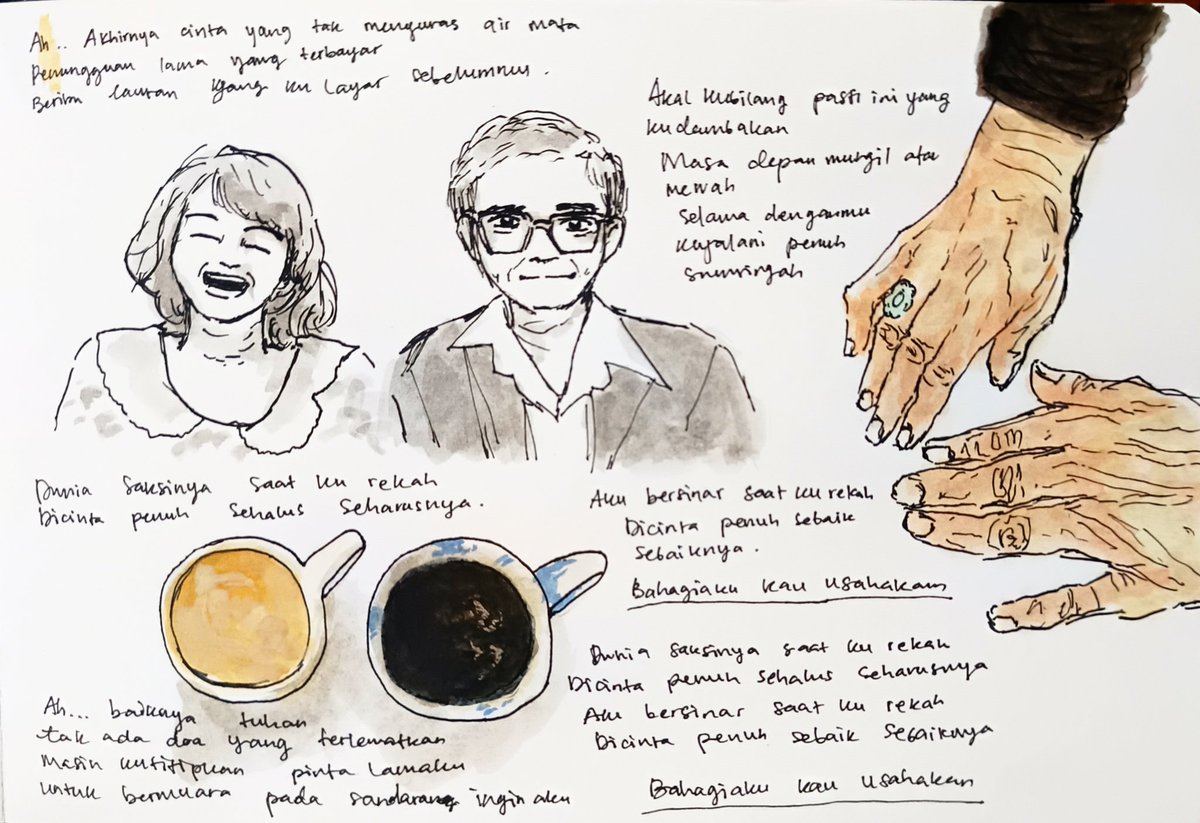 Ah.. Akhirnya cinta yang tak menguras air mata
Penungguan lama yang terbayar
Beribu lautan yang ku layar sebelumnus.
Akal kubilang pasti ini yang
kudambakan
Masa depan mungil atau
mewah
Selama denganmu
kujalani penuh
sumringah
Dunia saksinya saat ku rekah
Dicinta penuh sehalus seharusnya.
Aku bersinar saat ku rekah
Dicinta penuh sebaik
sebaiknya.
Bahagiaku kau usahakan
Ah... baiknya tuhan
tak ada doa yang terlewatkan
Masih kutitipkan pinta lamaku
untuk bermuara pada sandaran ingin aku
Dunia saksinya saat ku rekah
Dicinta penuh sehalus seharusnya
Aku bersinar saat ku rekah
Dicinta penuh sebaik sebaiknya
Bahagiaku kau usahakan